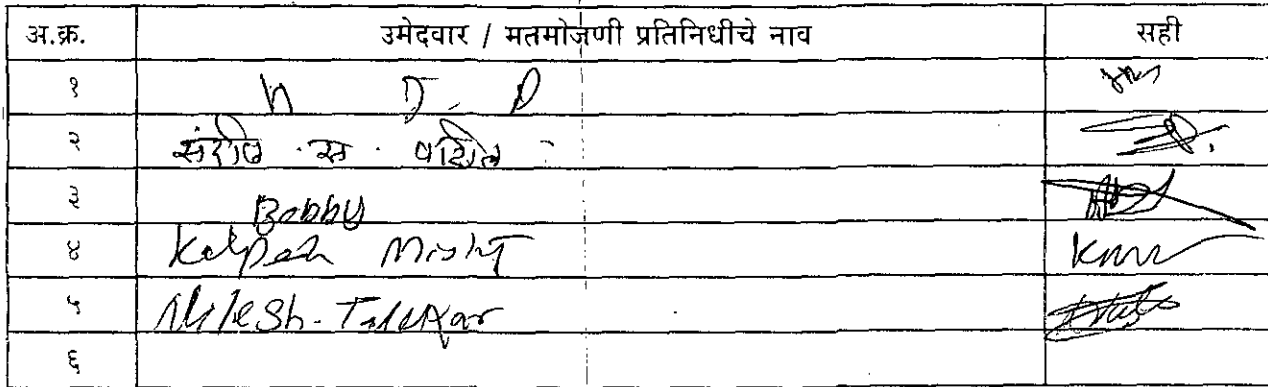 अ.क्र. उमेदवार / मतमोजणी प्रतिनिधीचे नाव सही
१ N D. P
२ संदीप . स . पाटील
३ Bobby
४ Kalpesh
५ Nilesh - Talekar
६